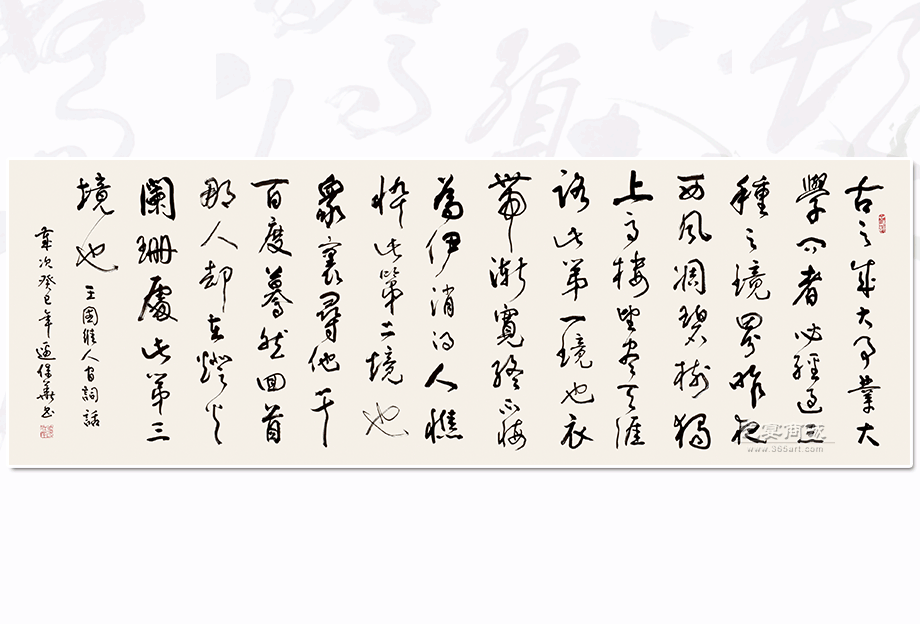 古之成大事業大
學問者必經過三
種之境界昨夜
西風凋碧樹獨
上高樓望盡天涯
路此第一境也衣
帶漸寬終不悔
為伊消得人憔
悴此第二境也
衆裏尋他千
百度驀然回首
那人却在燈火
闌珊處此第三
境也 王國維人間詞話
歲次癸巳年保華書
www.365art.com